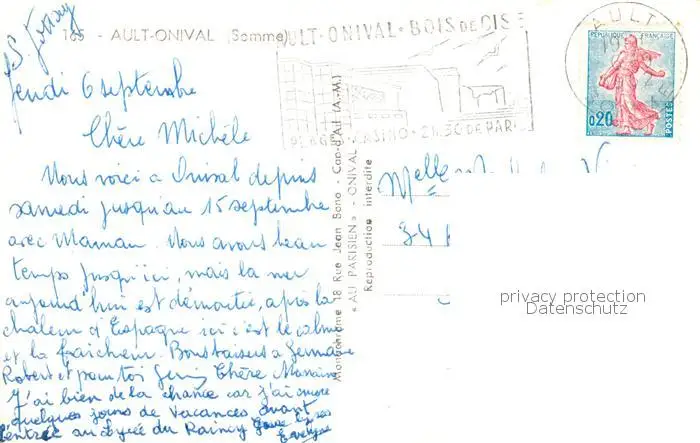 165 - AULT-ONIVAL (Somme)
Jeudi 6 septembre
Chère Michèle
Nous voici à Onival depuis
samedi jusqu'au 15 septembre
avec Maman. Nous avons beau
temps jusqu'ici, mais la mer
aujourd'hui est démontée, après la
chaleur d'Espagne ici c'est le calme
et la fraîcheur. Bons baisers à Germaine
Robert et pour toi Chère Marraine
J'ai bien de la chance car j'ai encore
quelques jours de vacances avant
l'entrée au Lycée du Raincy
Evelyne
Monochrome 18 Rue Jean Bono - Cap-d'Ail (A.-M.)
« AU PARISIEN » - ONIVAL
Reproduction interdite
AULT-ONIVAL-BOIS DE CISE
PLAGES-CASINO-2H.30 DE PARIS
AULT
RÉPUBLIQUE FRANÇAISE
0,20
POSTES
Melle
34
privacy protection
Datenschutz